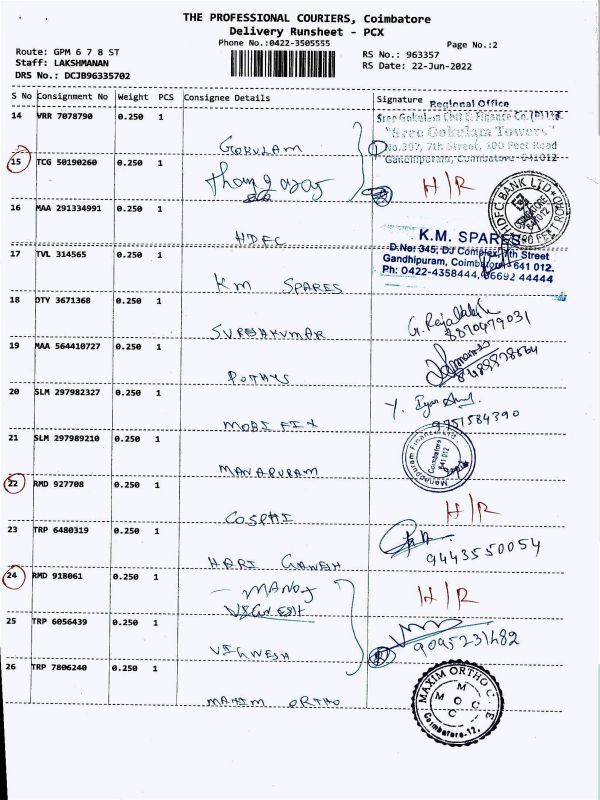 THE PROFESSIONAL COURIERS, Coimbatore
Delivery Runsheet - PCX
Phone No.:0422-3505555
Page No.:2
Route: GPM 6 7 8 ST
Staff: LAKSHMANAN
DRS No.: DCJB96335702
RS No.: 963357
RS Date: 22-Jun-2022
S No Consignment No Weight PCS Consignee Details Signature
Regional Office
Sree Gokulam Chit & Finance Co. (P) Ltd
"Sree Gokulam Towers"
No.397, 7th Street, 100 Feet Road
Gandhipuram, Coimbatore - 641012
14 VRR 7078790 0.250 1
GOKULAM
15 TCG 50190260 0.250 1
H/R
16 MAA 291334991 0.250 1
HDFC
HDFC BANK LTD
17 TVL 314565 0.250 1
KM SPARES
K.M. SPARES
D.No: 345, DJ Complex, 7th Street
Gandhipuram, Coimbatore - 641 012.
Ph: 0422-4358444, 06692 44444
18 OTY 3671368 0.250 1
SURYAKUMAR
8870479031
19 MAA 564410727 0.250 1
POTHYS
20 SLM 297982327 0.250 1
MOBI FIX
9751584390
21 SLM 297989210 0.250 1
MANAPURAM
Manappuram Finance Ltd.
Coimbatore
641 012
22 RMD 927708 0.250 1
H/R
23 TRP 6480319 0.250 1
HARI GANESH
9443550054
24 RMD 918061 0.250 1
MANOJ
VIGNESH
H/R
25 TRP 6056439 0.250 1
VIGNESH
9095231482
26 TRP 7806240 0.250 1
MAXIM ORTHO
MAXIM ORTHO C E
M
M O C
C
Coimbatore-12.